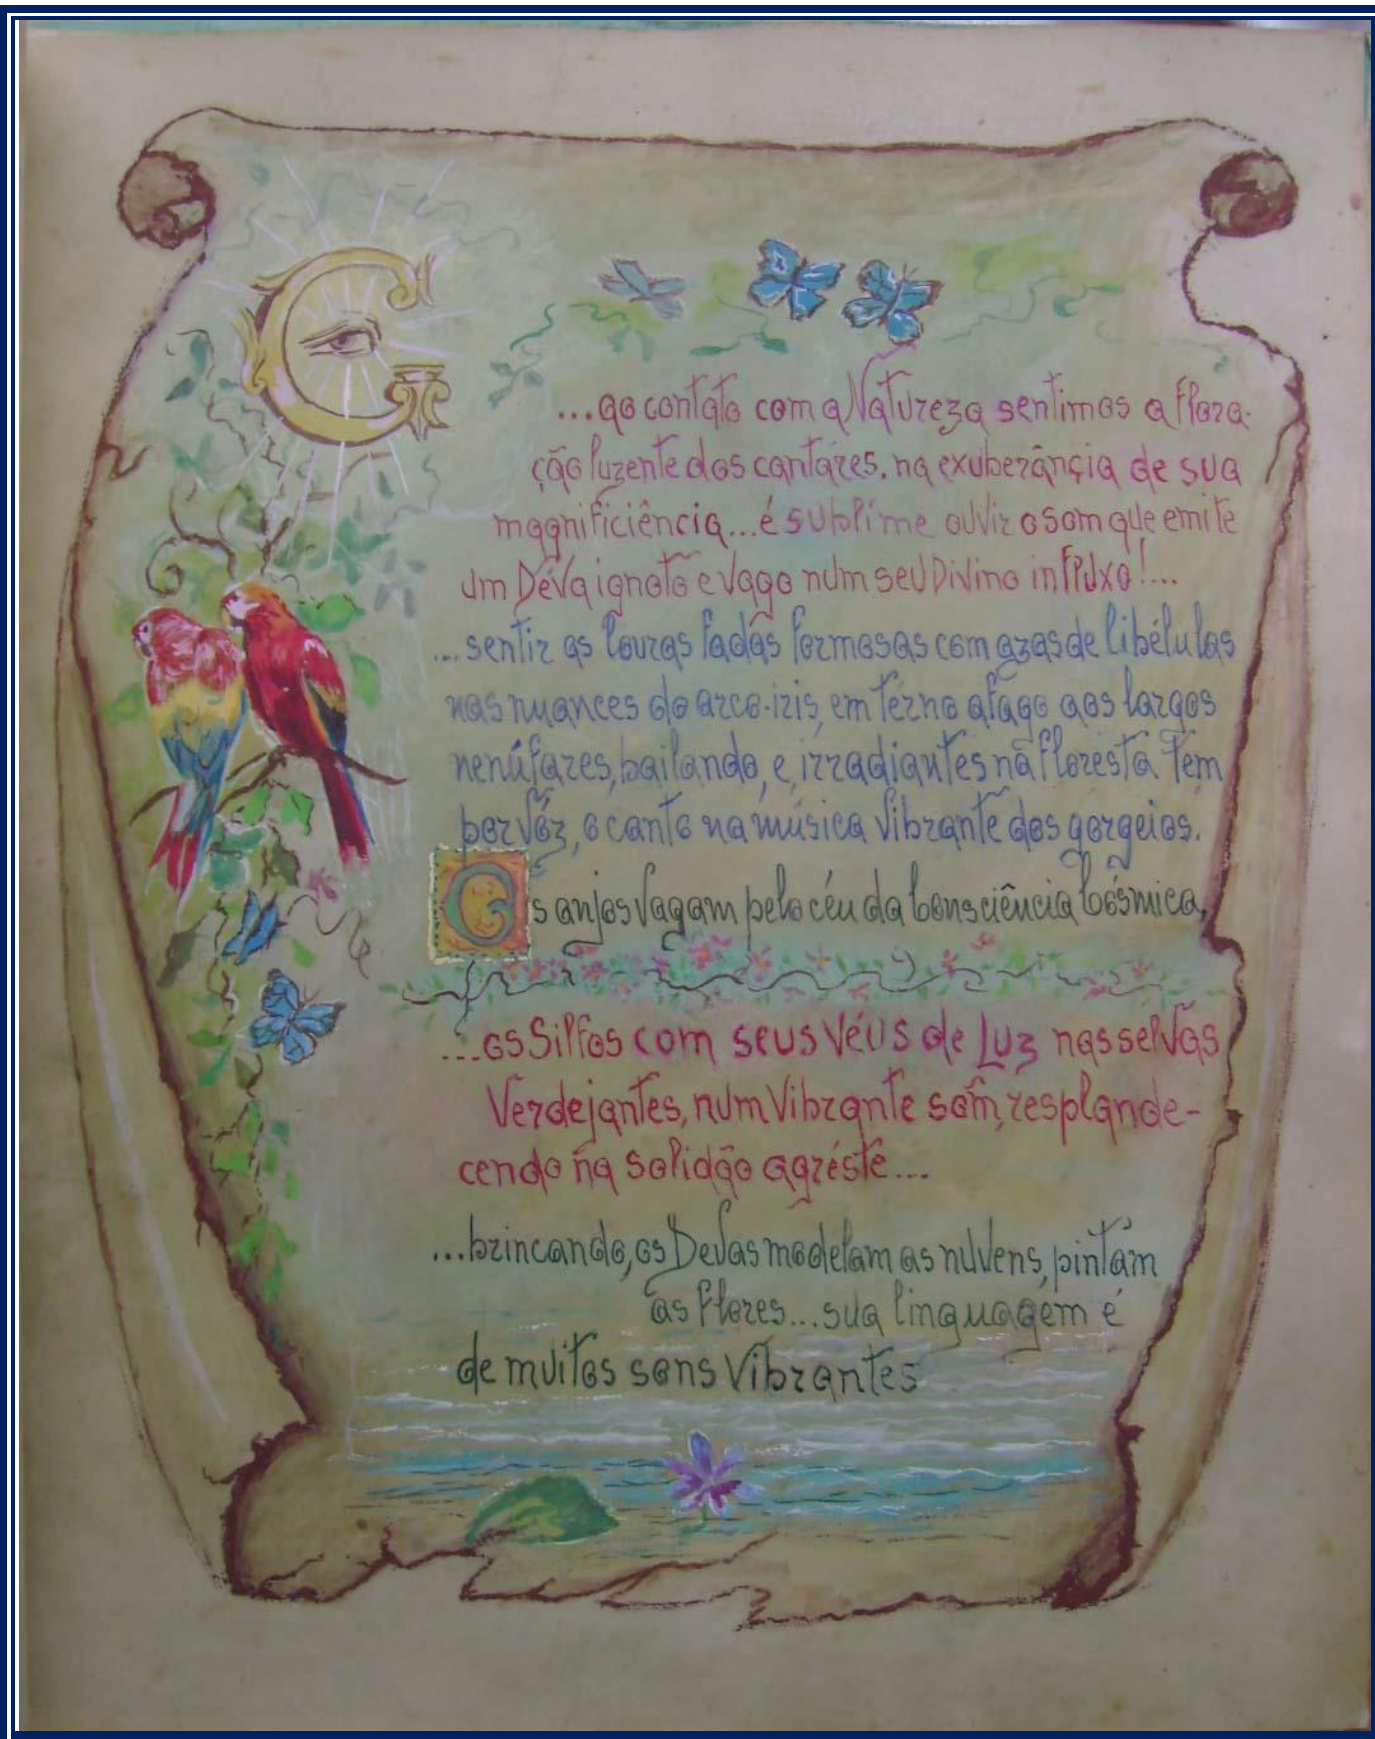 G
...ao contato com a Natureza sentimos a flora-
ção luzente dos cantáres, na exuberânçia de sua
magnificiência... é sublime ouvir o som que emite
um Déva ignoto e vago num seu Divino influxo!...
...sentir as louras fadas formosas com azas de libélulas
nas nuances do arco-izis, em térno afago aos largos
nenúfares, bailando, e, irradiantes na floresta tem
por vóz, o canto na música vibrante dos gorgeios.
Os anjos vagam pelo céu da Consciência Cósmica,
...os Silfos com seus Véus de Luz nas selvas
Verdejantes, num Vibrante som, resplande-
cendo na solidão agréste...
...brincando, os Devas modelam as nuvens, pintam
as flores... sua linguagem é
de muitos sons Vibrantes